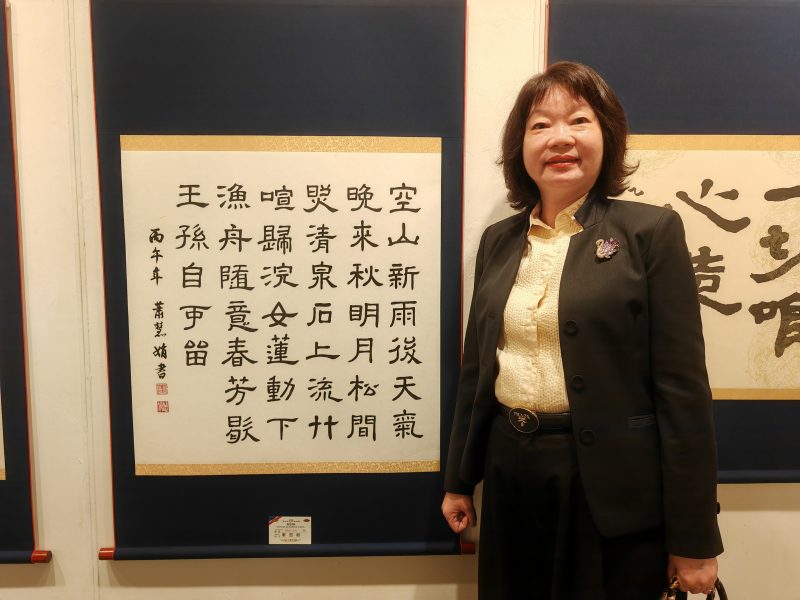 空山新雨後天氣
晚來秋明月松間
照清泉石上流竹
喧歸浣女蓮動下
漁舟隨意春芳歇
王孫自可留
丙午年 蕭慧娟書
一切唯
心造